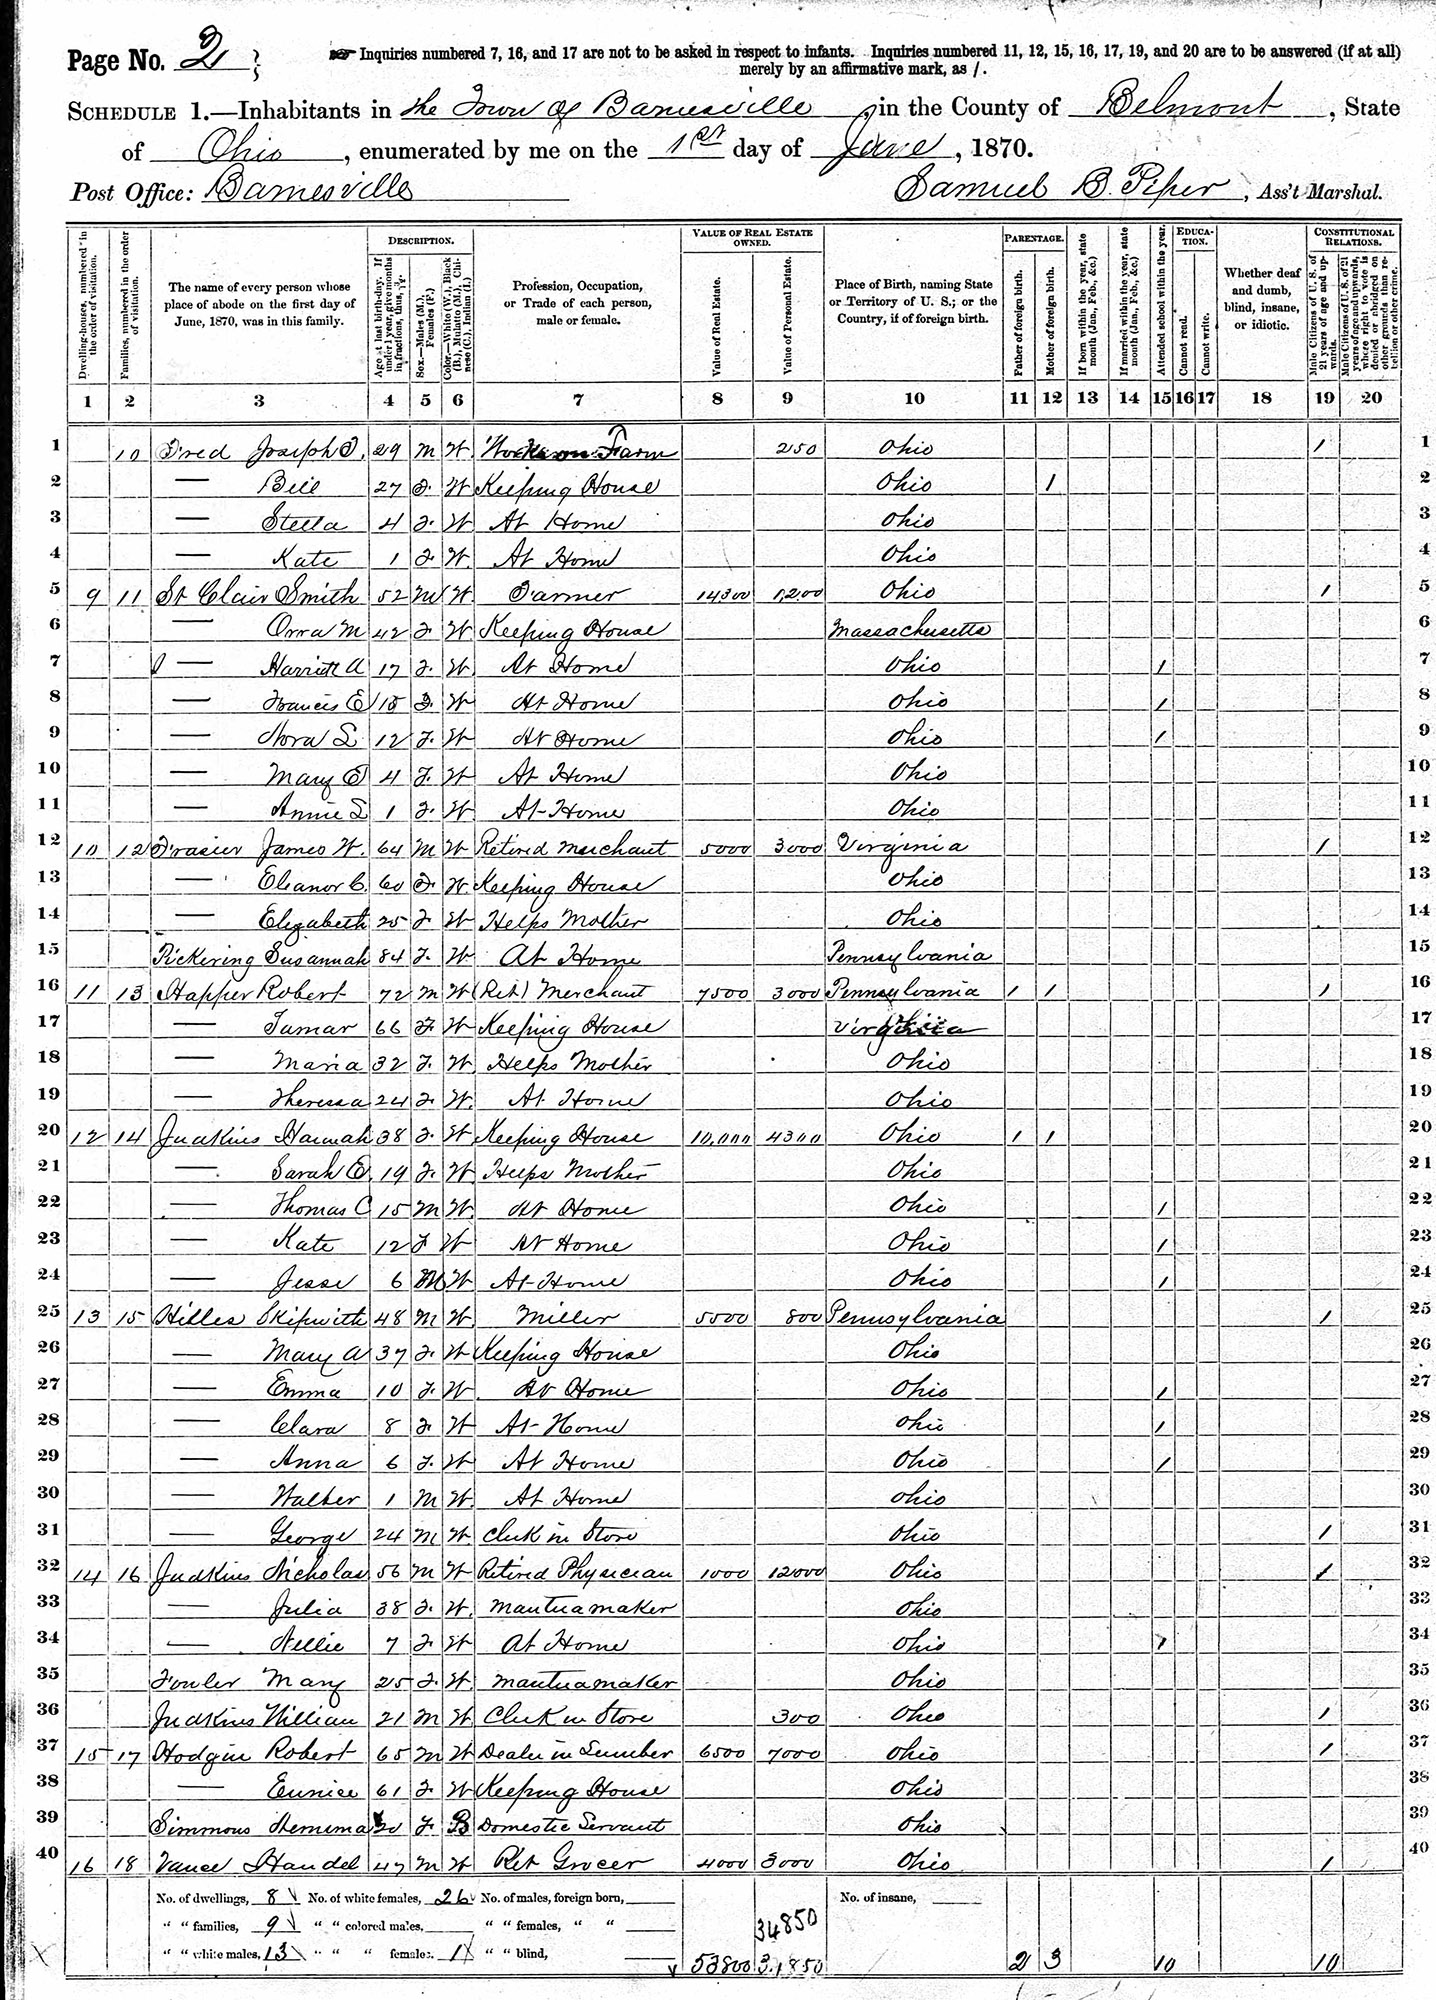 Page No. 2
Inquiries numbered 7, 16, and 17 are not to be asked in respect to infants. Inquiries numbered 11, 12, 15, 16, 17, 19, and 20 are to be answered (if at all)
merely by an affirmative mark, as /.
SCHEDULE 1.—Inhabitants in the Town of Barnesville, in the County of Belmont, State
of Ohio, enumerated by me on the 1st day of June, 1870.
Post Office: Barnesville Samuel B. Piper, Ass't Marshal.
Dwelling-houses, numbered in the order of visitation.
Families, numbered in the order of visitation.
The name of every person whose place of abode on the first day of June, 1870, was in this family.
DESCRIPTION.
Age at last birth-day. If under 1 year, give months in fractions, thus, 3/12.
Sex.—Males (M.), Females (F.)
Color.—White (W.), Black (B.), Mulatto (M.), Chinese (C.), Indian (I.)
Profession, Occupation, or Trade of each person, male or female.
VALUE OF REAL ESTATE OWNED.
Value of Real Estate.
Value of Personal Estate.
Place of Birth, naming State or Territory of U. S.; or the Country, if of foreign birth.
PARENTAGE.
Father of foreign birth.
Mother of foreign birth.
If born within the year, state month (Jan., Feb., &c.)
If married within the year, state month (Jan., Feb., &c.)
Attended school within the year.
EDUCATION.
Cannot read.
Cannot write.
Whether deaf and dumb, blind, insane, or idiotic.
CONSTITUTIONAL RELATIONS.
Male Citizens of U. S. of 21 years of age and upwards.
Male Citizens of U. S. of 21 years of age and upwards, where right to vote is denied or abridged on other grounds than rebellion or other crime.
1 2 3 4 5 6 7 8 9 10 11 12 13 14 15 16 17 18 19 20
1 10 Fred Joseph T. 29 M W Works on Farm 250 Ohio / 1
2 — Bell 27 F W Keeping House Ohio / 2
3 — Stella 4 F W At Home Ohio 3
4 — Kate 1 F W At Home Ohio 4
5 9 11 St Clair Smith 52 M W Farmer 14300 1,200 Ohio / 5
6 — Orra M 42 F W Keeping House Massachusetts 6
7 — Harriett A 17 F W At Home Ohio / 7
8 — Francis E 15 F W At Home Ohio / 8
9 — Nora L 12 F W At Home Ohio / 9
10 — Mary E 4 F W At Home Ohio 10
11 — Annie L 1 F W At Home Ohio 11
12 10 12 Frasier James W. 64 M W Retired Merchant 5000 3000 Virginia / 12
13 — Eleanor C. 60 F W Keeping House Ohio 13
14 — Elizabeth 25 F W Helps Mother Ohio 14
15 Pickering Susannah 84 F W At Home Pennsylvania 15
16 11 13 Happer Robert 72 M W (Ret) Merchant 7500 3000 Pennsylvania / / / 16
17 — Tamar 66 F W Keeping House Virginia 17
18 — Maria 32 F W Helps Mother Ohio 18
19 — Theressa 24 F W At Home Ohio 19
20 12 14 Judkins Hannah 38 F W Keeping House 10,000 4300 Ohio / / 20
21 — Sarah E. 19 F W Helps Mother Ohio 21
22 — Thomas C 15 M W At Home Ohio / 22
23 — Kate 12 F W At Home Ohio / 23
24 — Jesse 6 M W At Home Ohio / 24
25 13 15 Hilles Skipwith 48 M W Miller 5500 800 Pennsylvania / 25
26 — Mary A 37 F W Keeping House Ohio 26
27 — Emma 10 F W At Home Ohio / 27
28 — Clara 8 F W At Home Ohio / 28
29 — Anna 6 F W At Home Ohio / 29
30 — Walker 1 M W At Home Ohio 30
31 — George 24 M W Clerk in Store Ohio / 31
32 14 16 Judkins Nicholas 56 M W Retired Physician 1000 12000 Ohio / 32
33 — Julia 38 F W Mantuamaker Ohio 33
34 — Nellie 7 F W At Home Ohio / 34
35 Fowler Mary 25 F W Mantuamaker Ohio 35
36 Judkins William 21 M W Clerk in Store 300 Ohio / 36
37 15 17 Hodgin Robert 65 M W Dealer in Lumber 6500 7000 Ohio / 37
38 — Eunice 61 F W Keeping House Ohio 38
39 Simmons 20 F B Domestic Servant Ohio 39
40 16 18 Vance Handel 47 M W Ret Grocer 4000 3000 Ohio / 40
No. of dwellings, 8 No. of white females, 26 No. of males, foreign born, No. of insane,
" " families, 9 " " colored males, " " females, " " 34850
" " white males, 13 " " " females. 1 " " blind, 53800 31850 2 3 10 10